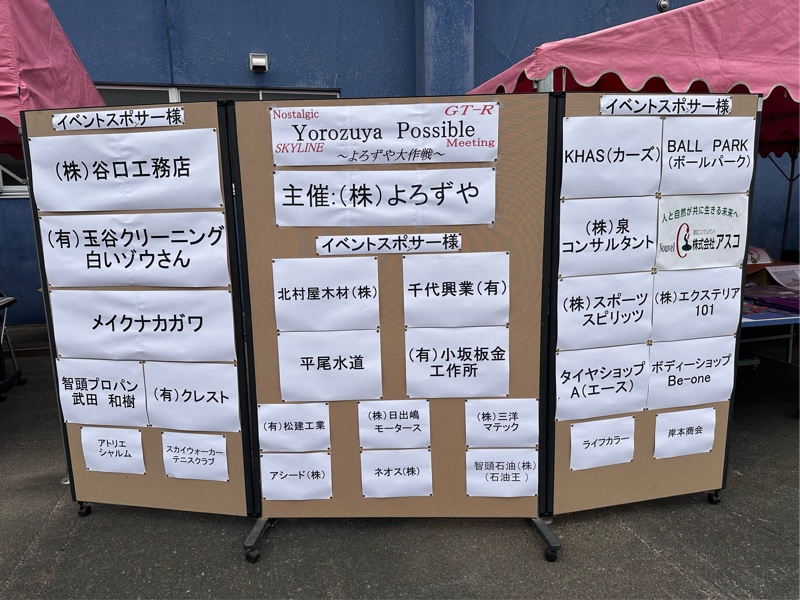 イベントスポサー様
(株)谷口工務店
(有)玉谷クリーニング
白いゾウさん
メイクナカガワ
智頭プロパン
武田 和樹
(有)クレスト
アトリエ
シャルム
スカイウォーカー
テニスクラブ
Nostalgic
GT-R
Yorozuya Possible
SKYLINE
Meeting
~よろずや大作戦~
主催:(株)よろずや
イベントスポサー様
北村屋木材(株)
千代興業(有)
平尾水道
(有)小坂板金
工作所
(有)松建工業
(株)日出嶋
モータース
(株)三洋
マテック
アシード(株)
ネオス(株)
智頭石油(株)
(石油王)
イベントスポサー様
KHAS(カーズ)
BALL PARK
(ボールパーク)
(株)泉
コンサルタント
人と自然が共に生きる未来へ
Nouvel
建設コンサルタント
株式会社アスコ
(株)スポーツ
スピリッツ
(株)エクステリア
101
タイヤショップ
A(エース)
ボディーショップ
Be-one
ライフカラー
岸本商会